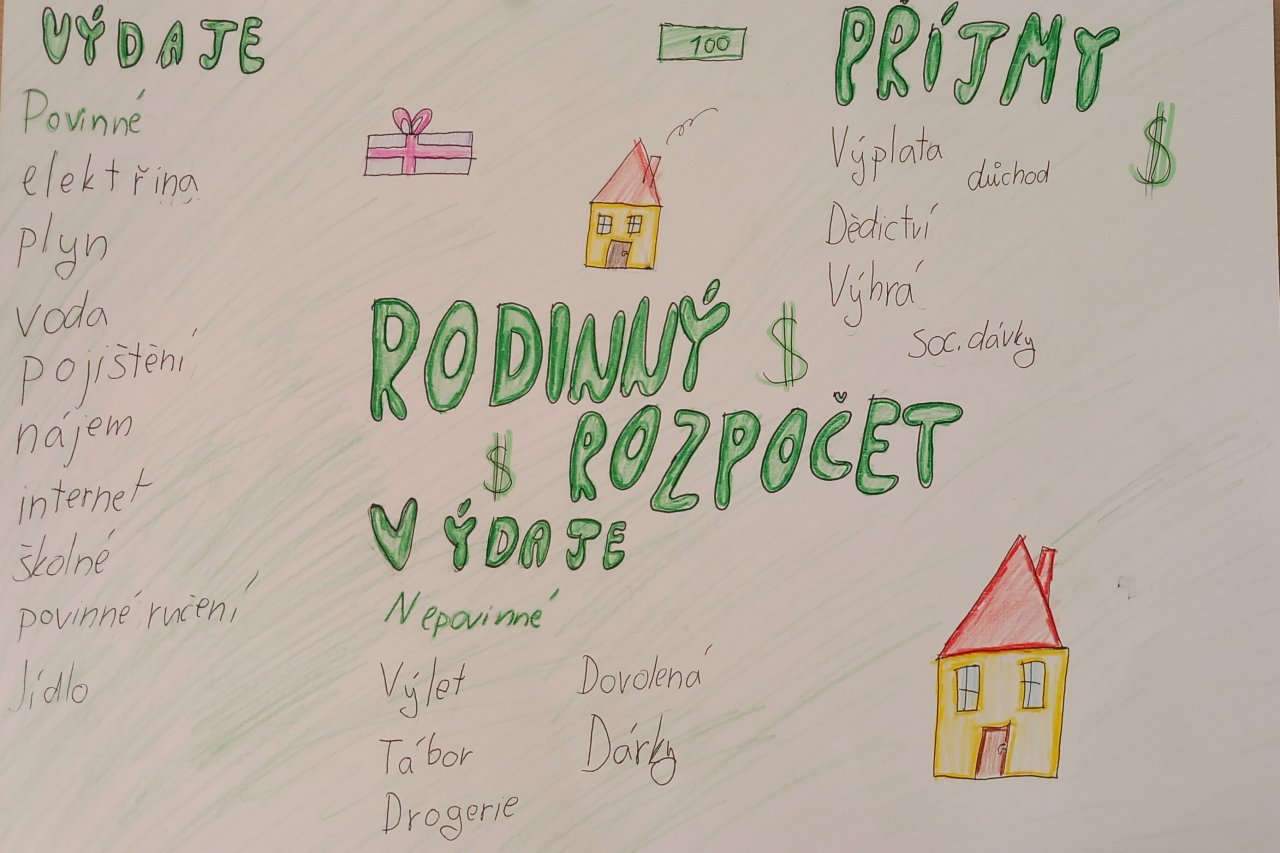 VÝDAJE
Povinné
elektřina
plyn
voda
pojištění
nájem
internet
školné
povinné ručení
Jídlo
100
PŘÍJMY
$
Výplata
důchod
Dědictví
Výhrá
soc. dávky
RODINNÝ $
$ ROZPOČET
VÝDAJE
Nepovinné
Výlet
Tábor
Drogerie
Dovolená
Dárky